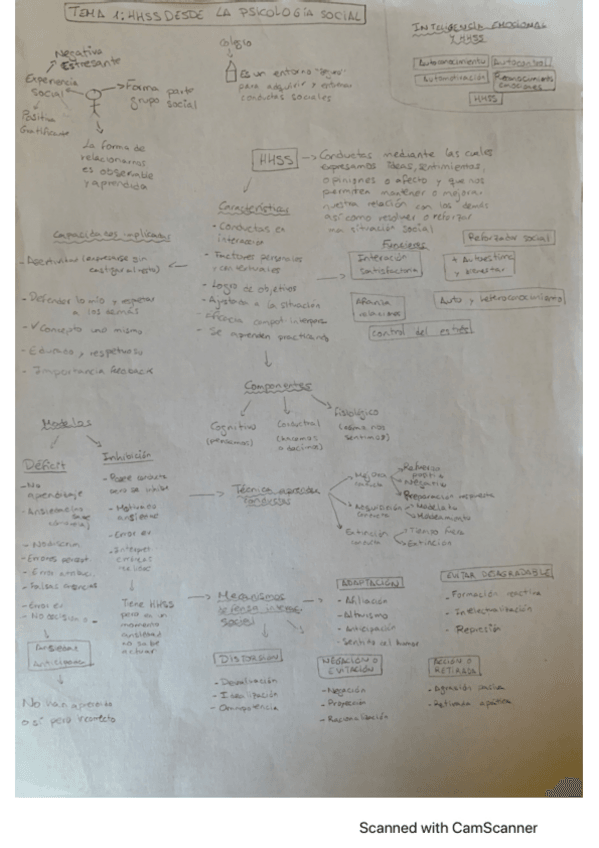 TEMA 1: HHSS DESDE LA PSICOLOGÍA SOCIAL
Negativa
Estresante
Experiencia
social
Positiva
Gratificante
Forma parte
grupo social
La forma de
relacionarnos
es observable
y aprendida
Colegio
Es un entorno
para adquirir y
conductas sociales
INTELIGENCIA EMOCIONAL
Y HHSS
Autoconocimiento
Autocontrol
Automotivación
Reconocimiento
emociones
HHSS
HHSS
Conductas mediante las cuales
expresamos ideas, sentimientos,
opiniones o afecto y que nos
permiten mantener o mejorar
nuestra relación con los demás
así como resolver o reforzar
una situación social
Características
- Conductas en
interacción
- Factores personales
y contextuales
- Logro de objetivos
- Ajustada a la situación
- Eficacia comport interpers
- Se aprenden practicando
Capacidades implicadas
- Asertividad (expresarse sin
castigar al resto)
- Defender lo mío y respetar
a los demás
- V Concepto uno mismo
- Educado y respetuoso
- Importancia feedback
Funciones
Interacción
satisfactoria
Reforzador social
+ Autoestima
y bienestar
Afianza
relaciones
Auto y heteroconocimiento
Control del estrés
Componentes
Cognitivo
(pensamos)
Conductual
(hacemos
o decimos)
Fisiológico
(cómo nos
sentimos)
Modelos
Déficit
- No
aprendizaje
- No discrim.
- Errores percept.
- Error atribuc.
- Falsas creencias
- No decisión o
Ansiedad
No han aprendido
o sí pero incorrecto
Inhibición
- Posee conducta
pero se inhibe
- Motivo no
ansiedad
- Error er
- Interpret.
errónea
realidad
Tiene HHSS
pero en un
momento
ansiedad
no sabe
actuar
Técnica aprender
Mejora
conducta
Refuerzo
positivo
Negativo
Adquisición
conducta
Modelado
Moldeamiento
Extinción
conducta
Tiempo fuera
Extinción
Mecanismos
defensa
social
ADAPTACIÓN
- Afiliación
- Altruismo
- Anticipación
- Sentido del humor
EVITAR DESAGRADABLE
- Formación reactiva
- Intelectualización
- Represión
DISTORSIÓN
- Devaluación
- Idealización
- Omnipotencia
NEGACIÓN O
EVITACIÓN
- Negación
- Proyección
- Racionalización
ACCIÓN O
RETIRADA
- Agresión pasiva
- Retirada apática
Scanned with CamScanner